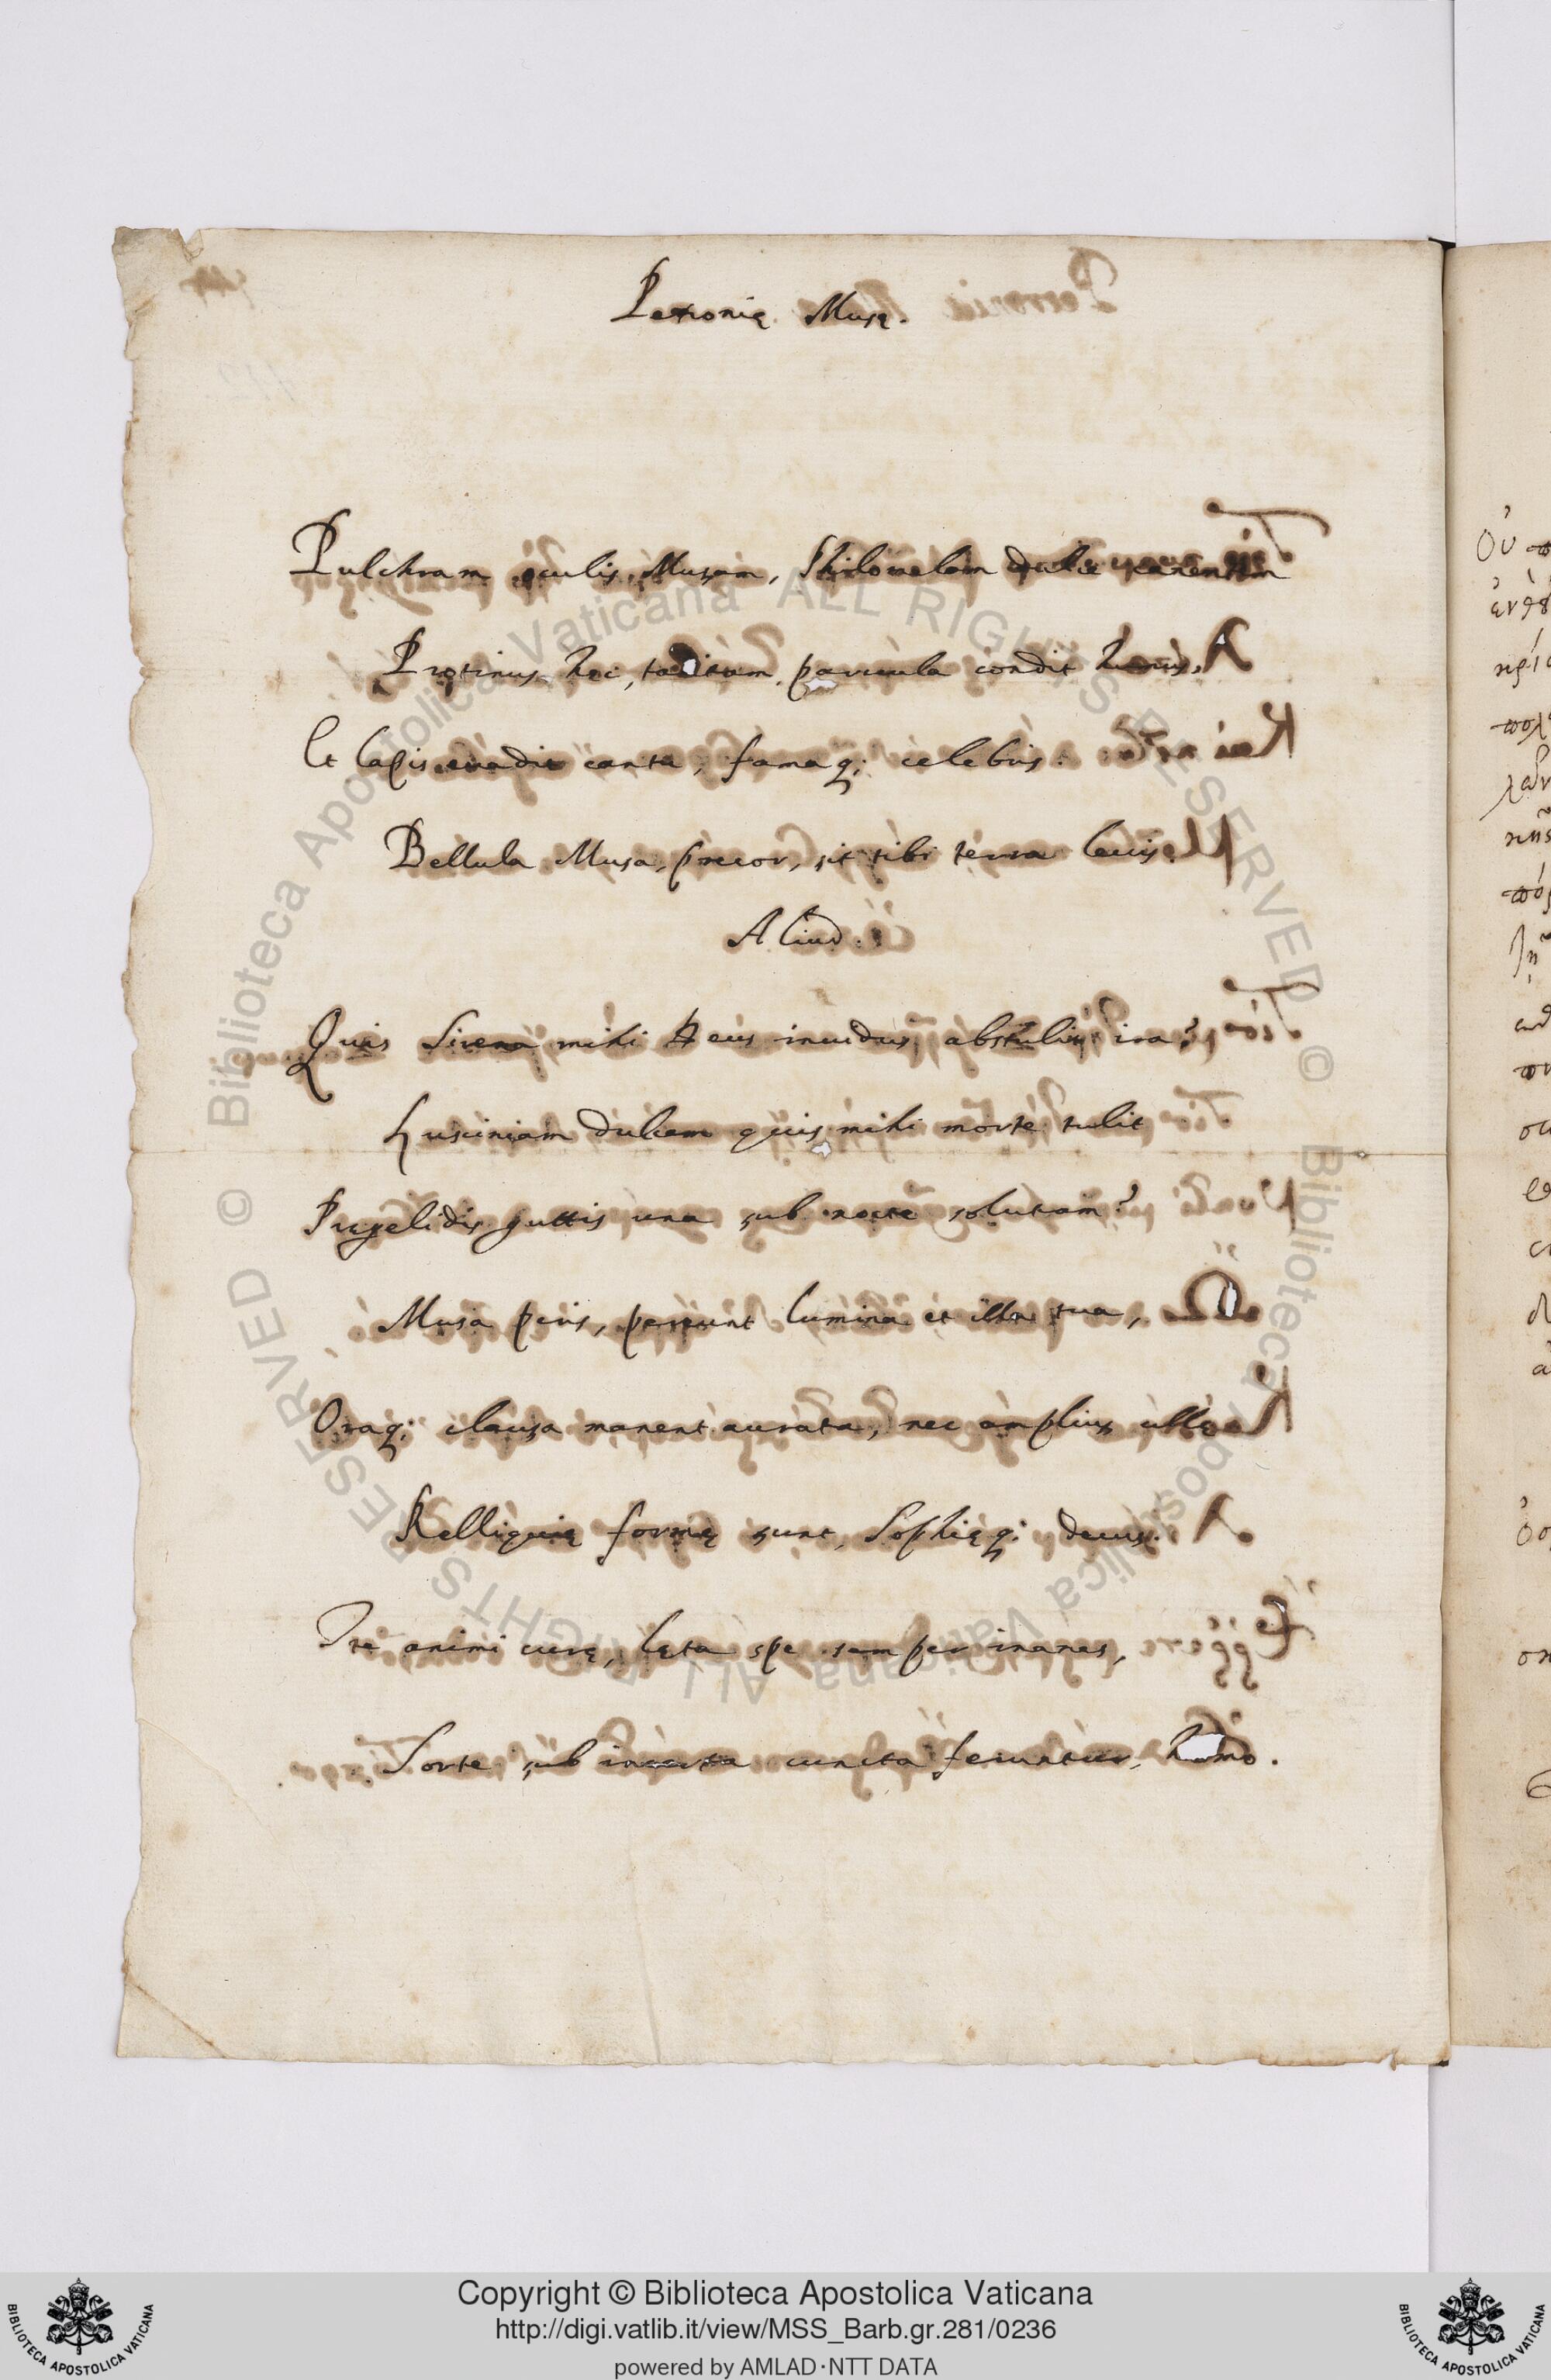 Petronię Musę.
Pulchram oculis Musam, Philomelam dulce canentem
Protinus hoc, tacitam, parvula condit humus,
Et lapis evadit cantu, famaq; celebris.
Bellula Musa, precor, sit tibi terra levis.
Aliud.
Quis Sirena mihi Deus invidus abstulit ira?
Lusciniam dulcem quis mihi morte tulit
Pugelidis guttis una sub nocte solutam?
Musa peris, pereunt lumina et illa tua,
Oraq; clausa manent aurata, nec amplius ullę
Relliquię formę sunt, Sophięq; decus.
Ite animi curę, lęta spe semper inanes,
Sorte sub incerta cuncta feruntur, homo.
Biblioteca Apostolica Vaticana ALL RIGHTS RESERVED ©
Biblioteca Apostolica Vaticana ALL RIGHTS RESERVED ©
Copyright © Biblioteca Apostolica Vaticana
http://digi.vatlib.it/view/MSS_Barb.gr.281/0236
powered by AMLAD·NTT DATA
BIBLIOTECA APOSTOLICA VATICANA
BIBLIOTECA APOSTOLICA VATICANA